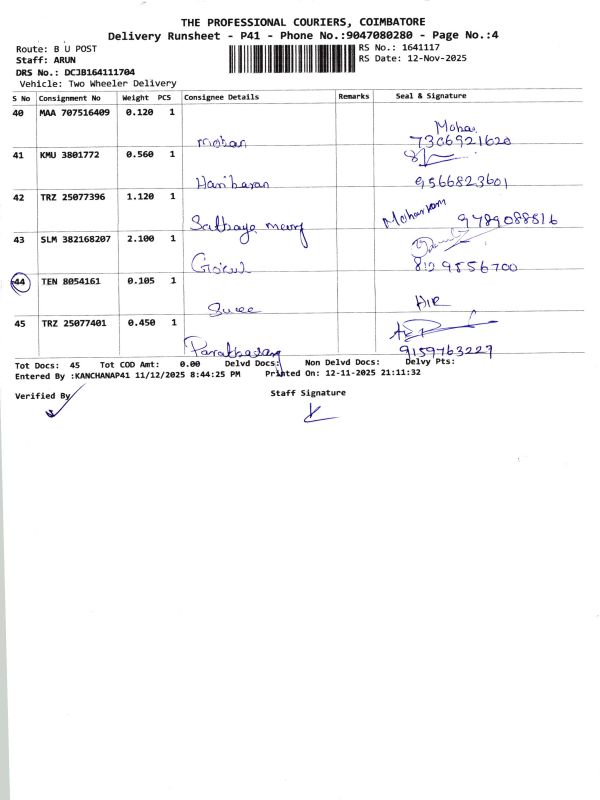 THE PROFESSIONAL COURIERS, COIMBATORE
Delivery Runsheet - P41 - Phone No.:9047080280 - Page No.:4
Route: B U POST
RS No.: 1641117
Staff: ARUN
RS Date: 12-Nov-2025
DRS No.: DCJB164111704
Vehicle: Two Wheeler Delivery
S No Consignment No Weight PCS Consignee Details Remarks Seal & Signature
40 MAA 707516409 0.120 1
Mohan
mohan 7306921620
41 KMU 3801772 0.560 1
Hariharan 9566823601
42 TRZ 25077396 1.120 1
9789088816
43 SLM 382168207 2.100 1
Gokul 8129856700
44 TEN 8054161 0.105 1
45 TRZ 25077401 0.450 1
9159763227
Tot Docs: 45 Tot COD Amt: 0.00 Delvd Docs: Non Delvd Docs: Delvy Pts:
Entered By :KANCHANAP41 11/12/2025 8:44:25 PM Printed On: 12-11-2025 21:11:32
Verified By Staff Signature